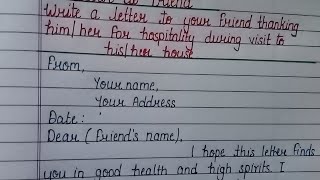 Friend
Write a letter to your friend thanking
him/her for hospitality during visit to
his/her house
From,
Your name,
Your Address
Date:
Dear (Friend's name),
I hope this letter finds
you in good health and high spirits. I